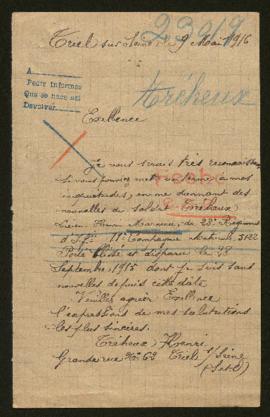 23919
Triel sur Seine 9 Mai 1916
A
Pedir Informes
Que se hace así
Devolver
Tréheux
Exellence
Je vous serais très reconnaissant
si vous pouviez mettre à mes
inquiétudes, en me donnant des
nouvelles du soldat Tréheux
Henri du 28e Régiment
d'Ifie 11e Compagnie Matricule 3122
Porté blessé et disparu le 28
Septembre 1915 dont je suis sans
nouvelles depuis cette date
Veuillez agréer Exellence
l'expressions de mes salutations
les plus sincères.
Tréheux Henri
Grande rue No 62 Triel s/Seine
(S et O)